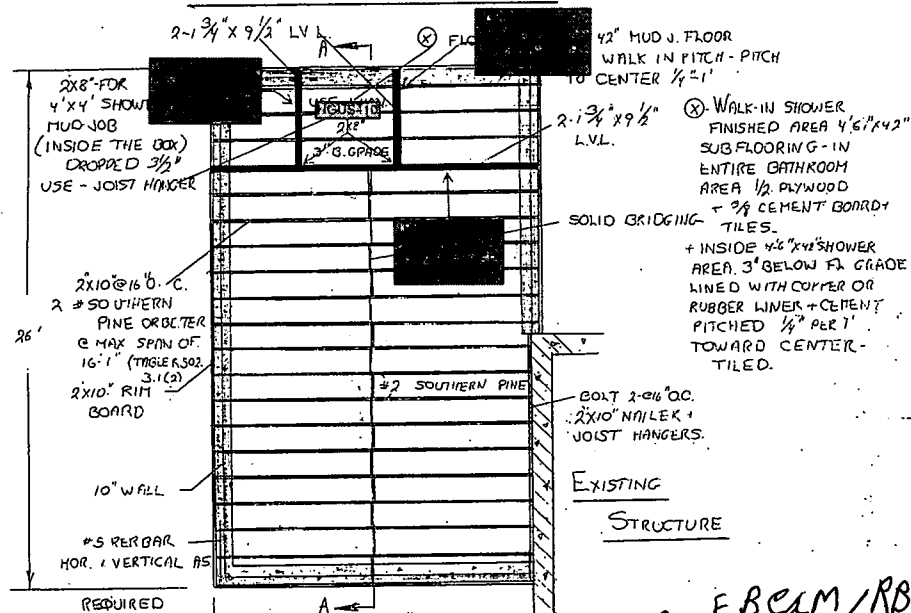 2-1 3/4" X 9 1/2" L.V.L.
A
Ⓧ FLO
42" MUD J. FLOOR
WALK IN PITCH - PITCH
TO CENTER 1/4"-1'
2X8"-FOR
4'X4' SHOW
MUD JOB
(INSIDE THE BOX)
DROPPED 3 1/2"
USE - JOIST HANGER
2X8"
3" B. GRADE
2-1 3/4" X 9 1/2"
L.V.L.
Ⓧ-WALK-IN SHOWER
FINISHED AREA X42"
SUBFLOORING-IN
ENTIRE BATHROOM
AREA 1/2 PLYWOOD
+ CEMENT BOARD+
TILES-
+ INSIDE 4'-6"X42" SHOWER
AREA. 3" BELOW FL GRADE
LINED WITH COPPER OR
RUBBER LINER + CEMENT
PITCHED 1/4" PER 1'
TOWARD CENTER-
TILED.
SOLID BRIDGING
2"X10"@16"O.C.
2 #SOUTHERN
PINE OR BETTER
@ MAX SPAN OF
16'-1" (TABLE R502
3.1(2)
26'
2X10" RIM
BOARD
#2 SOUTHERN PINE
BOLT 2-@16"O.C.
2X10" NAILER +
JOIST HANGERS.
10" WALL
EXISTING
STRUCTURE
#5 RERBAR
HOR. & VERTICAL AS
REQUIRED
A